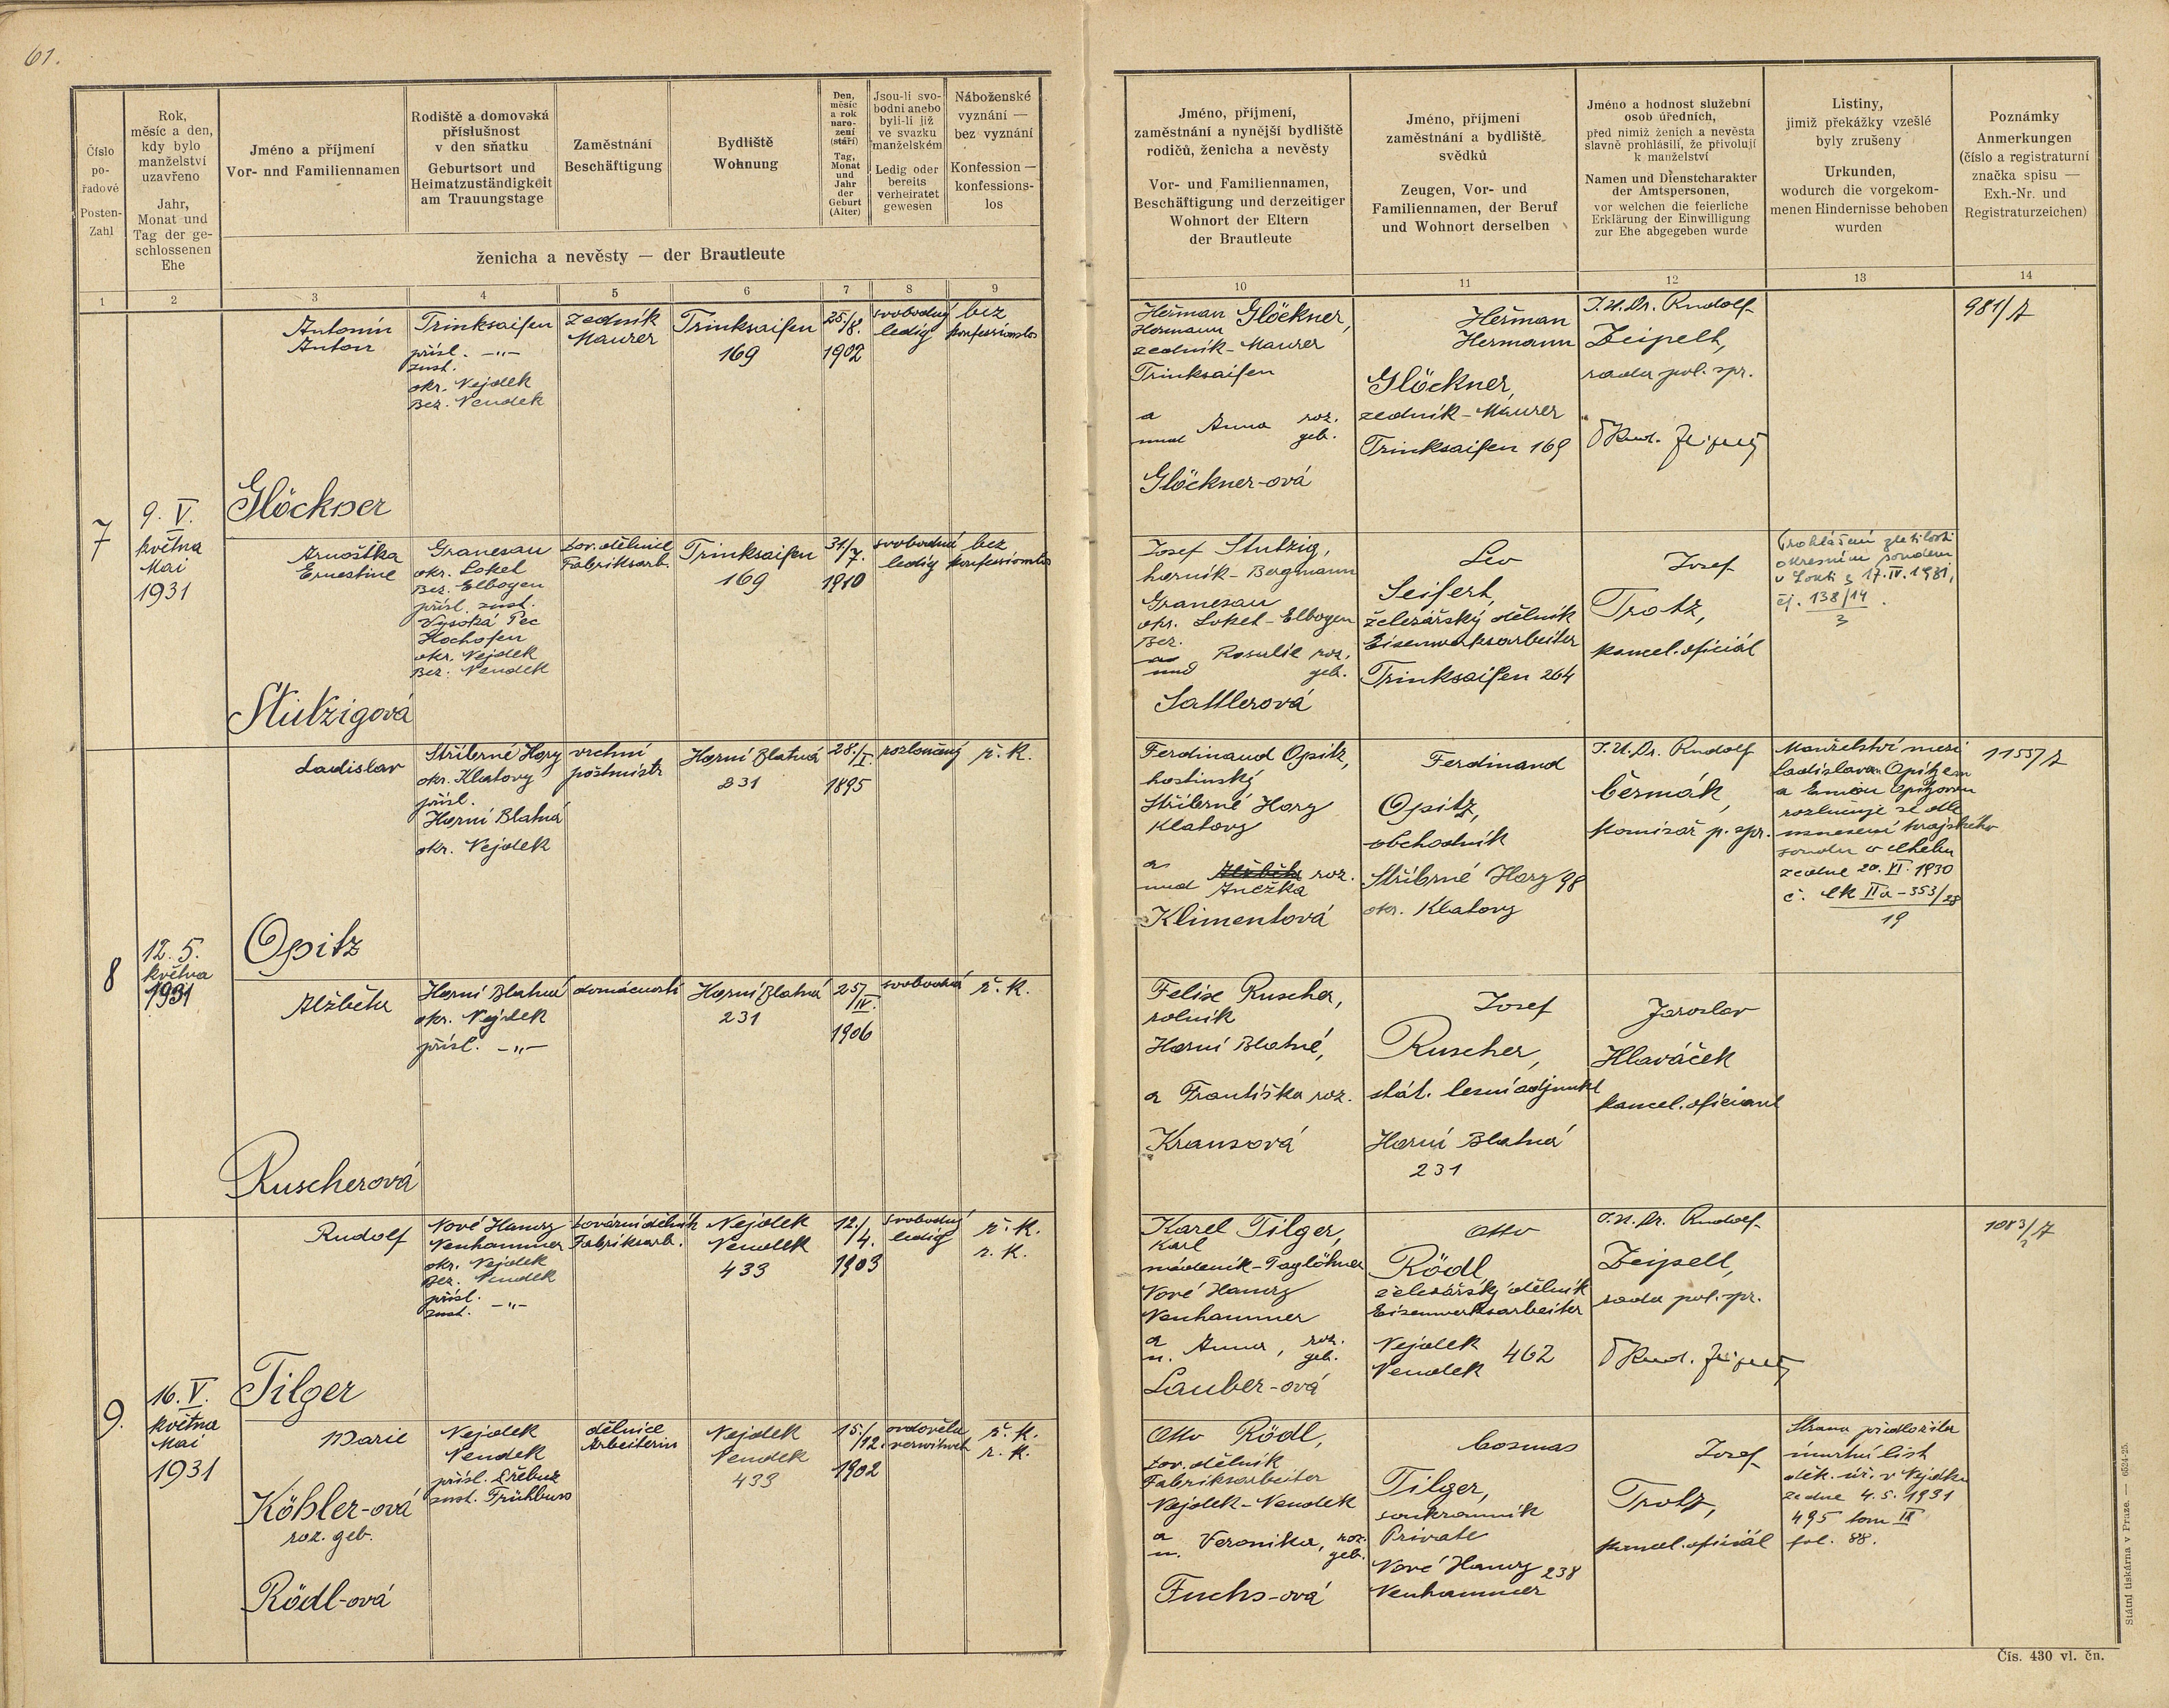 61.
Číslo
po-
řadové
Posten-
Zahl
Rok,
měsíc a den,
kdy bylo
manželství
uzavřeno
Jahr,
Monat und
Tag der ge-
schlossenen
Ehe
Jméno a příjmení
Vor- nnd Familiennamen
Rodiště a domovská
příslušnost
v den sňatku
Geburtsort und
Heimatzuständigkeit
am Trauungstage
Zaměstnání
Beschäftigung
Bydliště
Wohnung
Den,
měsíc
a rok
naro-
zení
(stáří)
Tag,
Monat
und
Jahr
der
Geburt
(Alter)
Jsou-li svo-
bodní anebo
byli-li již
ve svazku
manželském
Ledig oder
bereits
verheiratet
gewesen
Náboženské
vyznání —
bez vyznání
Konfession —
konfessions-
los
ženicha a nevěsty — der Brautleute
Jméno, příjmení,
zaměstnání a nynější bydliště
rodičů, ženicha a nevěsty
Vor- und Familiennamen,
Beschäftigung und derzeitiger
Wohnort der Eltern
der Brautleute
Jméno, příjmení
zaměstnání a bydliště
svědků
Zeugen, Vor- und
Familiennamen, der Beruf
und Wohnort derselben
Jméno a hodnost služební
osob úředních,
před nimiž ženich a nevěsta
slavně prohlásili, že přivolují
k manželství
Namen und Dienstcharakter
der Amtspersonen,
vor welchen die feierliche
Erklärung der Einwilligung
zur Ehe abgegeben wurde
Listiny,
jimiž překážky vzešlé
byly zrušeny
Urkunden,
wodurch die vorgekom-
menen Hindernisse behoben
wurden
Poznámky
Anmerkungen
(číslo a registraturní
značka spisu —
Exh.-Nr. und
Registraturzeichen)
1 2 3 4 5 6 7 8 9 10 11 12 13 14
7
9. V.
května
Mai
1931
Antonín
Anton
Glöckner
Trinksaifen
přísl. -„-
zust.
okr. Nejdek
Bez. Neudek
zedník
Maurer
Trinksaifen
169
25./
8.
1902
svobodný
ledig
bez
konfessionslos
Heřman Glöckner,
Hermann
zedník - Maurer
Trinksaifen
a
und Anna roz.
geb.
Glöckner-ová
Heřman
Hermann
Glöckner,
zedník - Maurer
Trinksaifen 169
J.U.Dr. Rudolf
Zeipelt,
rada pol. spr.
981/7
Arnoštka
Ernestine
Stutzigová
Granesau
okr. Loket
Bez. Elbogen
přísl. zust.
Vysoká Pec
Hochofen
okr. Nejdek
Bez. Neudek
tov. dělnice
Fabriksarb.
Trinksaifen
169
31/
7.
1910
svobodná
ledig
bez
konfessionslos
Josef Stutzig,
horník - Bergmann
Granesau
okr. Loket - Elbogen
Bez.
a
und Rosalie roz.
geb.
Sattlerová
Leo
Seifert,
železářský dělník
Eisenwerksarbeiter
Trinksaifen 264
Josef
Trotz,
kancel. oficiál
Prohlášení zletilosti
okresním soudem
v Lokti z 17. IV. 1931,
čj. 138/14
3
8
12. 5.
května
1931
Ladislav
Opitz
Stříbrné Hory
okr. Klatovy
přísl.
Horní Blatná
okr. Nejdek
vrchní
poštmistr
Horní Blatná
231
28./
I.
1895
rozloučený
ř. k.
Ferdinand Opitz,
hostinský
Stříbrné Hory
Klatovy
a
und Alžběta roz.
Anežka
Klimentová
Ferdinand
Opitz,
obchodník
Stříbrné Hory 98
okr. Klatovy
J.U.Dr. Rudolf
Čermák,
komisař p. spr.
Manželství mezi
Ladislavem Opitzem
a Emou Opitzovou
rozlučuje se dle
usnesení krajského
soudu v Chebu
ze dne 20. XI. 1930
č. Ck IIa - 353/28
19
1155/7
Alžběta
Ruscherová
Horní Blatná
okr. Nejdek
přísl. -„-
domácnosti
Horní Blatná
231
25/
IV.
1906
svobodná
ř. k.
Felix Ruscher,
rolník
Horní Blatné,
a Františka roz.
Krausová
Josef
Ruscher,
stát. lesní adjunkt
Horní Blatná
231
Jaroslav
Hlaváček
kancel. oficiant
9.
16. V.
května
Mai
1931
Rudolf
Tilger
Nové Hamry
Neuhammer
okr. Nejdek
Bez. Neudek
přísl.
zust. -„-
tovární dělník
Fabriksarb.
Nejdek
Neudek
433
12./
4.
1903
svobodný
ledig
ř. k.
r. k.
Karel Tilger,
Karl
nádeník - Taglöhner
Nové Hamry
Neuhammer
a
u. Anna, roz.
geb.
Lauber-ová
Otto
Rödl
železářský dělník
Eisenwerksarbeiter
Nejdek
Neudek 462
J.U.Dr. Rudolf
Zeipelt,
rada pol. spr.
1083/7
2
Marie
Köhler-ová
roz. geb.
Rödl-ová
Nejdek
Neudek
přísl. Přebuz
zust. Frühbuss
dělnice
Arbeiterin
Nejdek
Neudek
433
15./
12.
1902
ovdovělá
verwitwet
ř. k.
r. k.
Otto Rödl,
tov. dělník
Fabriksarbeiter
Nejdek - Neudek
a
u. Veronika, roz.
geb.
Fuchs-ová
Cosmas
Tilger,
soukromník
Private
Nové Hamry 238
Neuhammer
Josef
Trotz,
kancel. oficiál
Strana předložila
úmrtní list
děk. úř. v Nejdku
ze dne 4. 5. 1931
495 tom IX
fol. 88.
Státní tiskárna v Praze. — 6524-25.
Čís. 430 vl. čn.